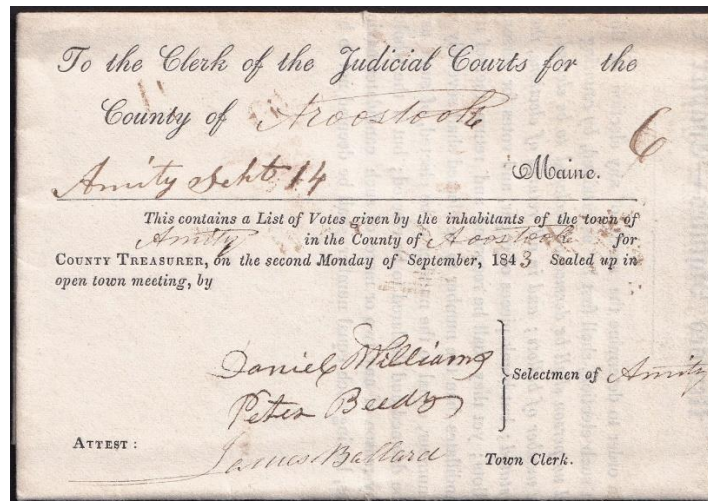 To the Clerk of the Judicial Courts for the
County of Aroostook
6
Amity Sept 14 Maine.
This contains a List of Votes given by the inhabitants of the town of
Amity in the County of Aoostook for
COUNTY TREASURER, on the second Monday of September, 1843 Sealed up in
open town meeting, by
Daniel Williams
Peter Beedy
Selectmen of Amity
ATTEST: James Ballard Town Clerk.